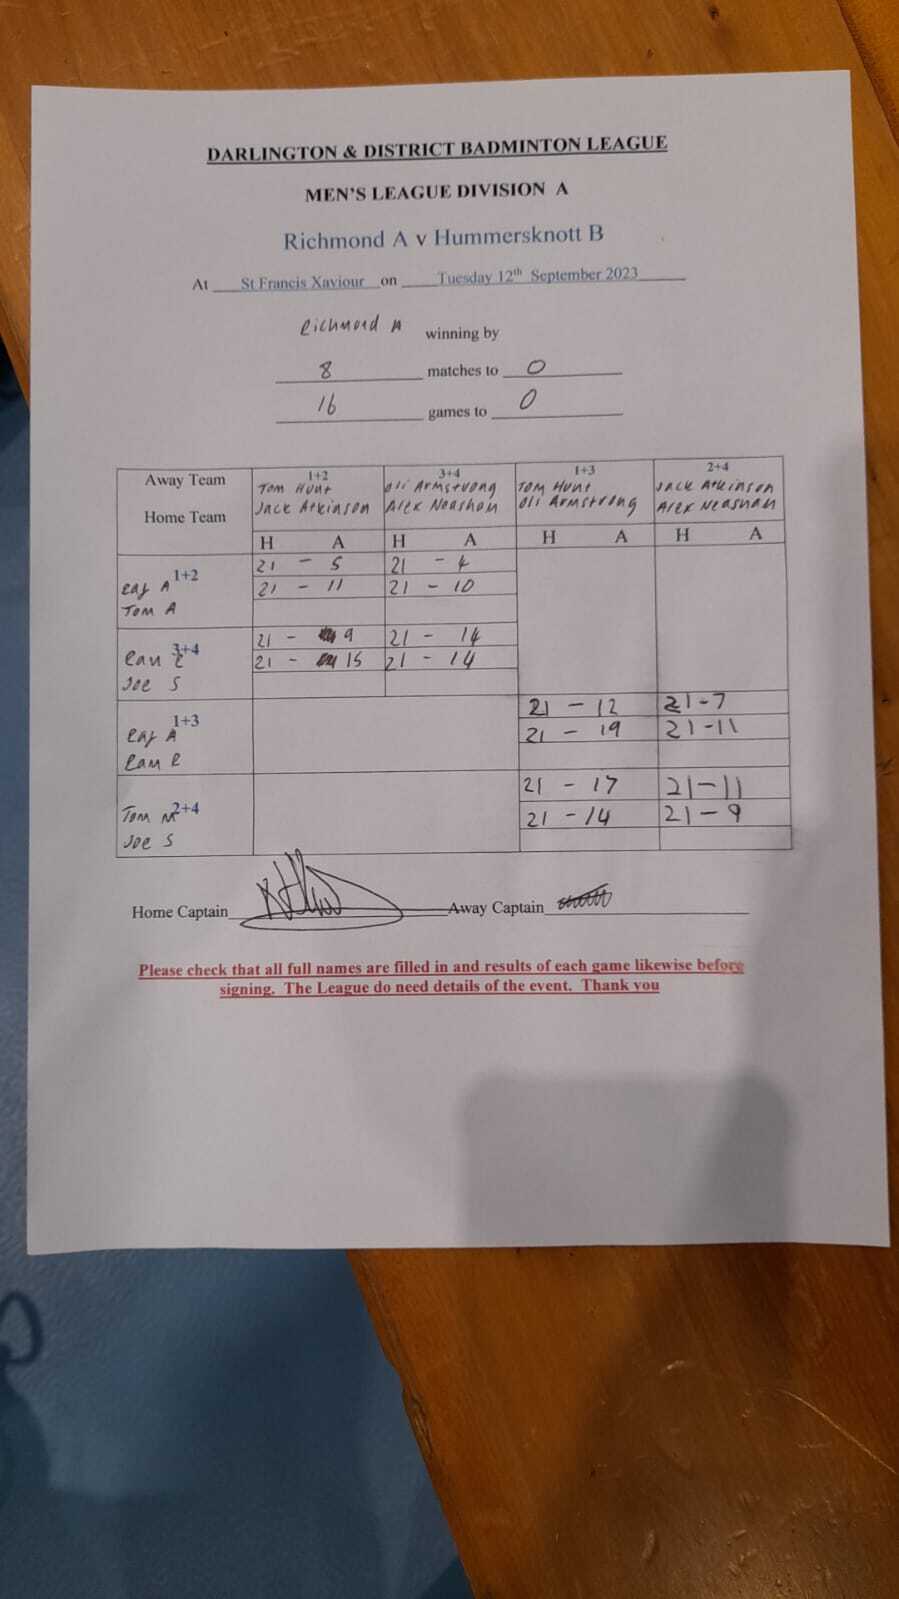 DARLINGTON & DISTRICT BADMINTON LEAGUE
MEN'S LEAGUE DIVISION A
Richmond A v Hummersknott B
At St Francis Xaviour on Tuesday 12th September 2023
Richmond A winning by
8 matches to 0
16 games to 0
Away Team
Home Team
1+2
Tom Hunt
Jack Atkinson
3+4
Oli Armstrong
Alex Neasham
1+3
Tom Hunt
Oli Armstrong
2+4
Jack Atkinson
Alex Neasham
H A H A H A H A
1+2
Raj A
Tom A
21 - 5 21 - 4
21 - 11 21 - 10
3+4
Joe S
21 - 9 21 - 14
21 - 15 21 - 14
1+3
Raj A
21 - 12 21-7
21 - 19 21-11
2+4
Tom
Joe S
21 - 17 21-11
21 - 14 21-9
Home Captain Away Captain
Please check that all full names are filled in and results of each game likewise before
signing. The League do need details of the event. Thank you